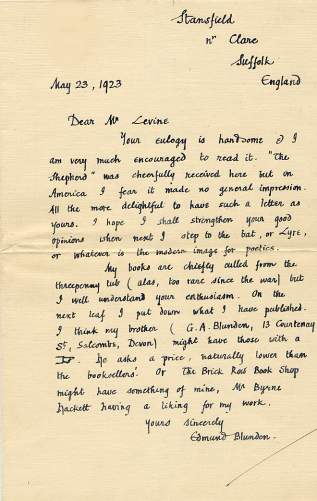 Stansfield
nr Clare
Suffolk
England
May 23, 1923
Dear Mr Levine
Your eulogy is handsome & I
am very much encouraged to read it. "The
Shepherd" was cheerfully received here but in
America I fear it made no general impression.
All the more delightful to have such a letter as
yours. I hope I shall strengthen your good
opinions when next I step to the bat, or Lyre,
or whatever is the modern image for poetics.
My books are chiefly culled from the
threepenny tub (alas, too rare since the war) but
I well understand your enthusiasm. On the
next leaf I put down what I have published.
I think my brother (G.A. Blunden, 13 Courtenay
St, Salcombe, Devon) might have those with a
He asks a price, naturally lower than
the booksellers'. Or The Brick Row Book Shop
might have something of mine, Mr Byrne
Hackett having a liking for my work.
Yours sincerely
Edmund Blunden.